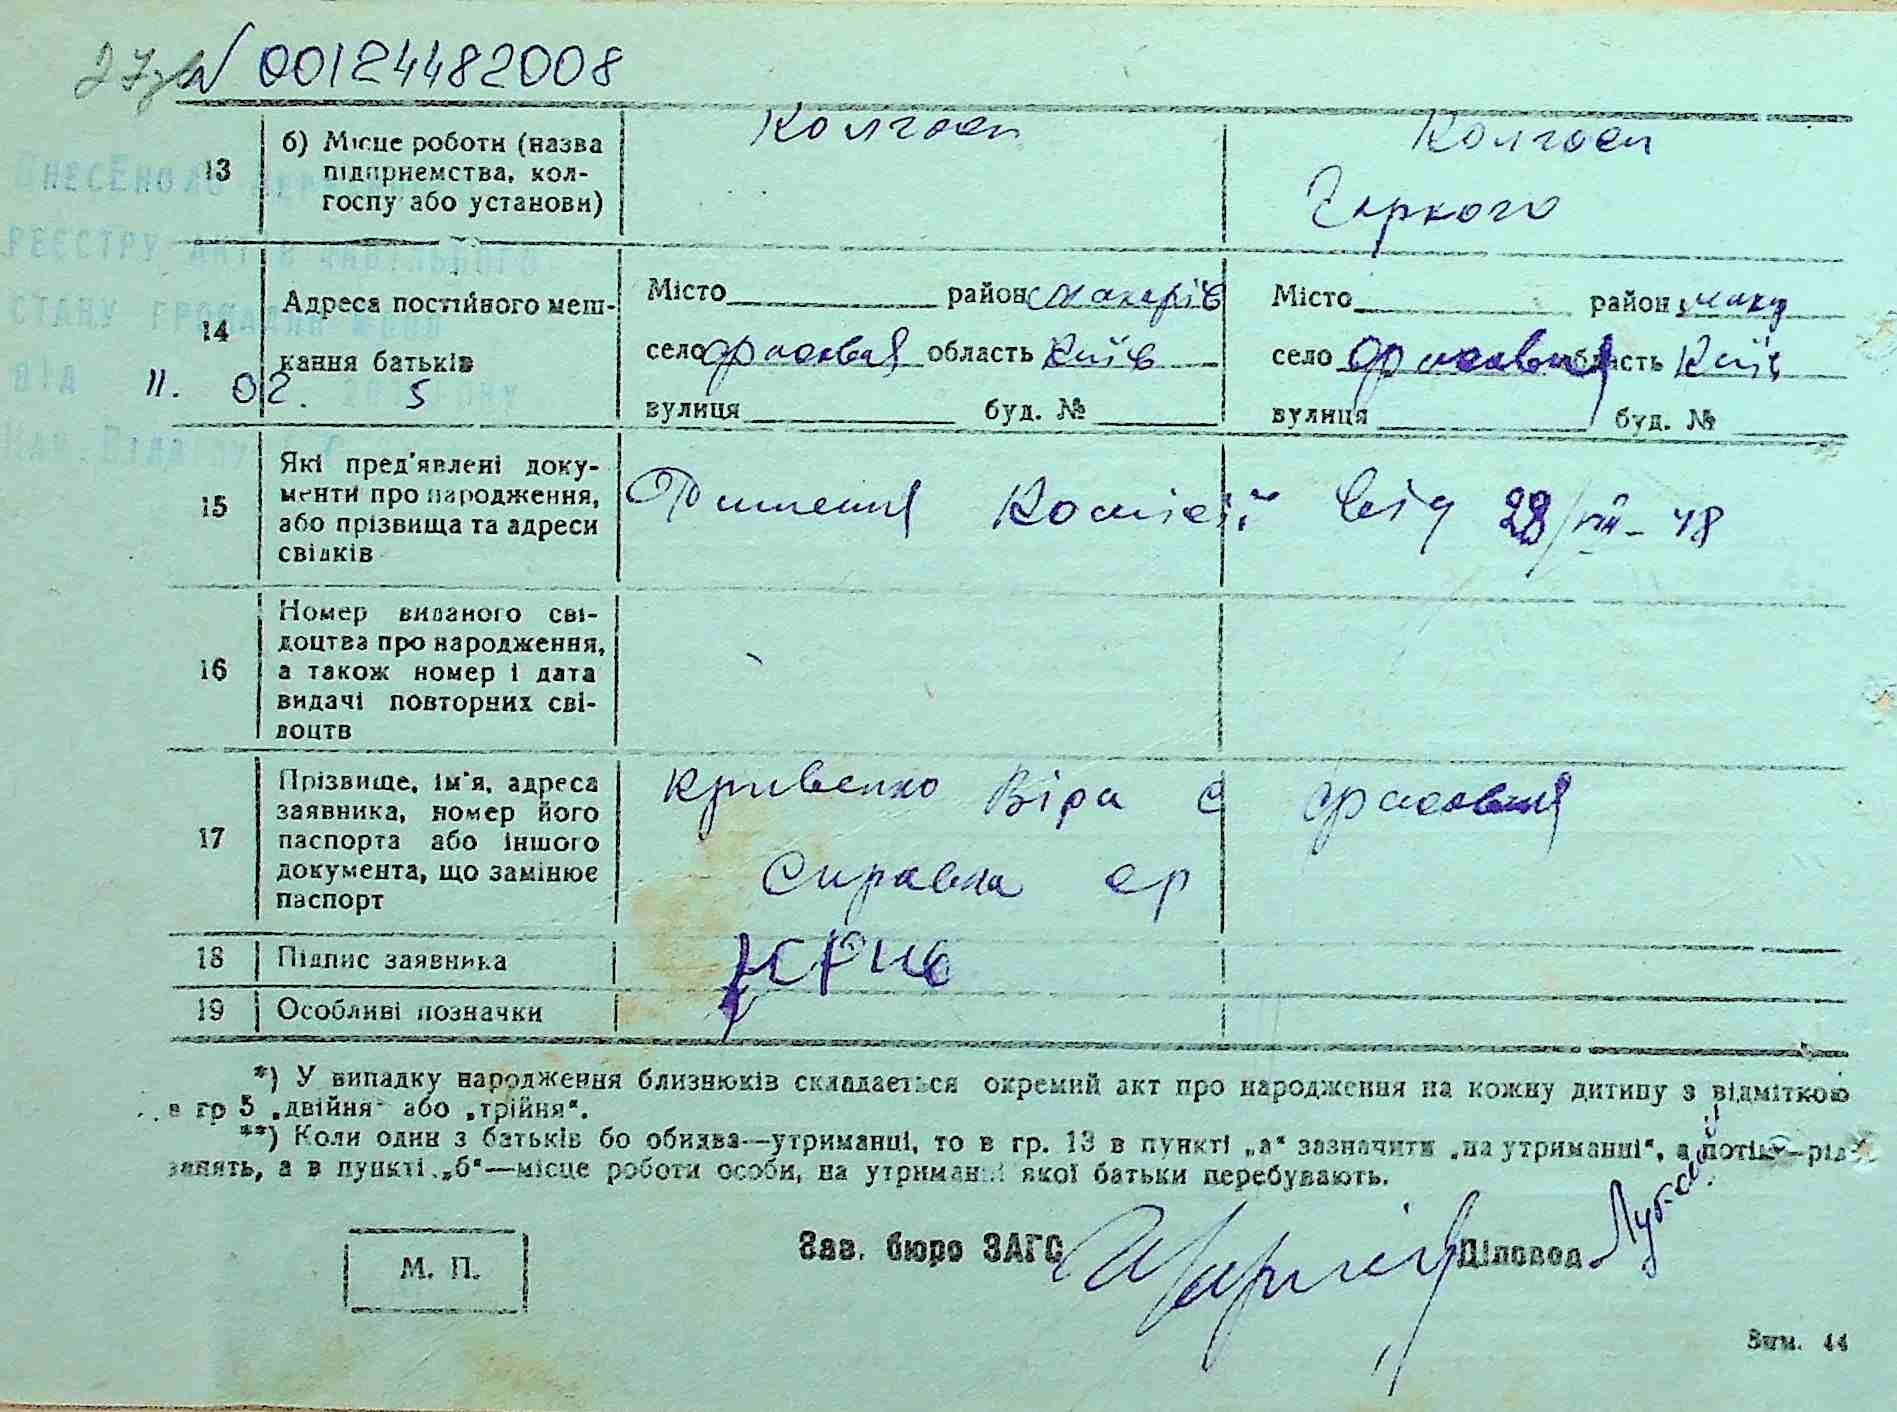 № 00124482008
Колгосп Колгосп
13 б) Місце роботи (назва підприємства, колгоспу або установи)
Горкого
ВНЕСЕНО ДО ДЕРЖАВНОГО
РЕЄСТРУ АКТІВ ЦИВІЛЬНОГО
СТАНУ ГРОМАДЯН
ВІД 11. 02. 5
14 Адреса постійного меш-
кання батьків
Місто район Макарів
село Фасівка область Київ
вулиця буд. №
Місто район Мака
село Фасівка область Київ
вулиця буд. №
15 Які пред'явлені доку-
менти про народження,
або прізвища та адреси
свідків
Рішення Комісії від 28/VIII-48
16 Номер виданого сві-
доцтва про народження,
а також номер і дата
видачі повторних сві-
доцтв
17 Прізвище, ім'я, адреса
заявника, номер його
паспорта або іншого
документа, що замінює
паспорт
Кривенко Віра с
Справка ср
18 Підпис заявника
19 Особливі позначки
*) У випадку народження близнюків складається окремий акт про народження на кожну дитину з відміткою
в гр 5 „двійня“ або „трійня“.
**) Коли один з батьків бо обидва—утриманці, то в гр. 13 в пункті „а“ зазначити „на утриманні“, а потім—рід
занять, а в пункті „б“—місце роботи особи, на утриманні якої батьки перебувають.
М. П.
Зав. бюро ЗАГС Діловод
Зам. 44